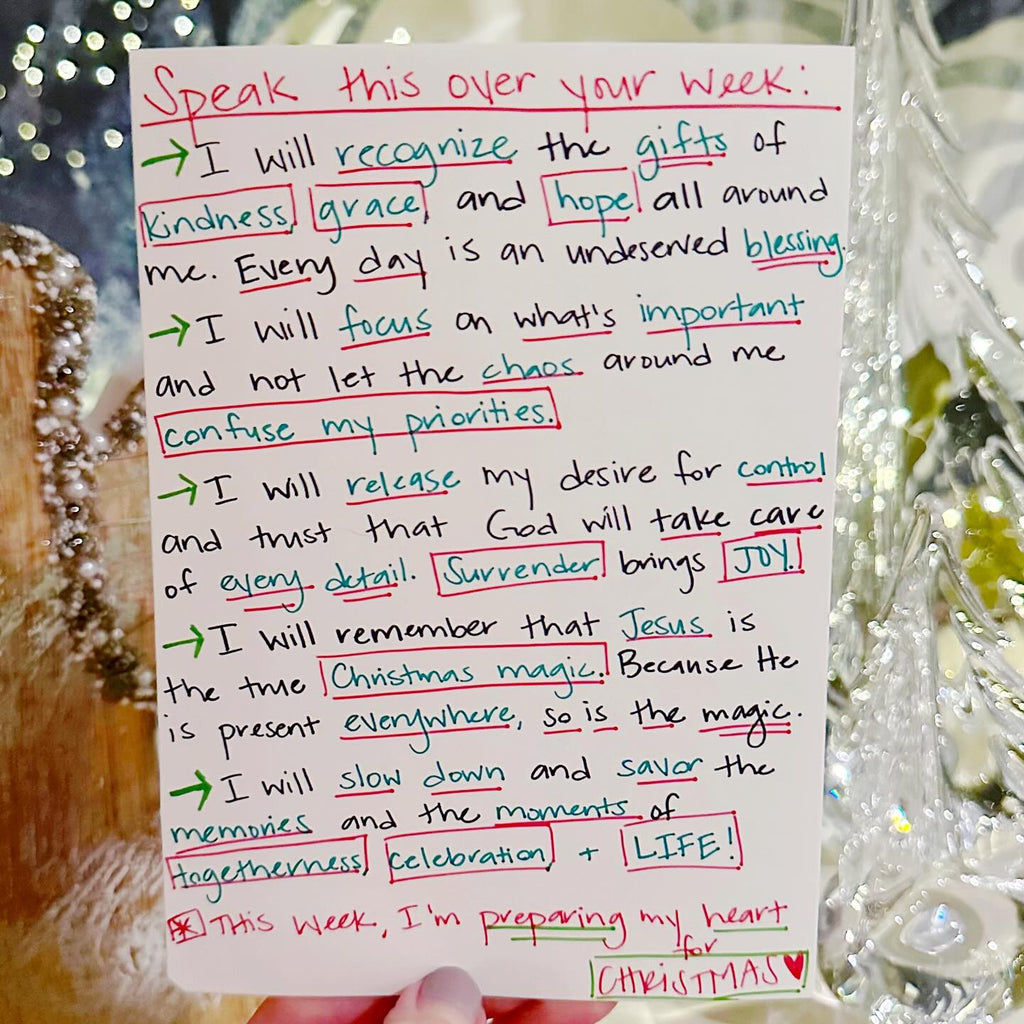 Speak this over your week:
→ I will recognize the gifts of
kindness, grace, and hope all around
me. Every day is an undeserved blessing.
→ I will focus on what's important
and not let the chaos around me
confuse my priorities.
→ I will release my desire for control
and trust that God will take care
of every detail. Surrender brings JOY.
→ I will remember that Jesus is
the true Christmas magic. Because He
is present everywhere, so is the magic.
→ I will slow down and savor the
memories and the moments of
togetherness, celebration, + LIFE!
* This week, I'm preparing my heart
for
CHRISTMAS ♥